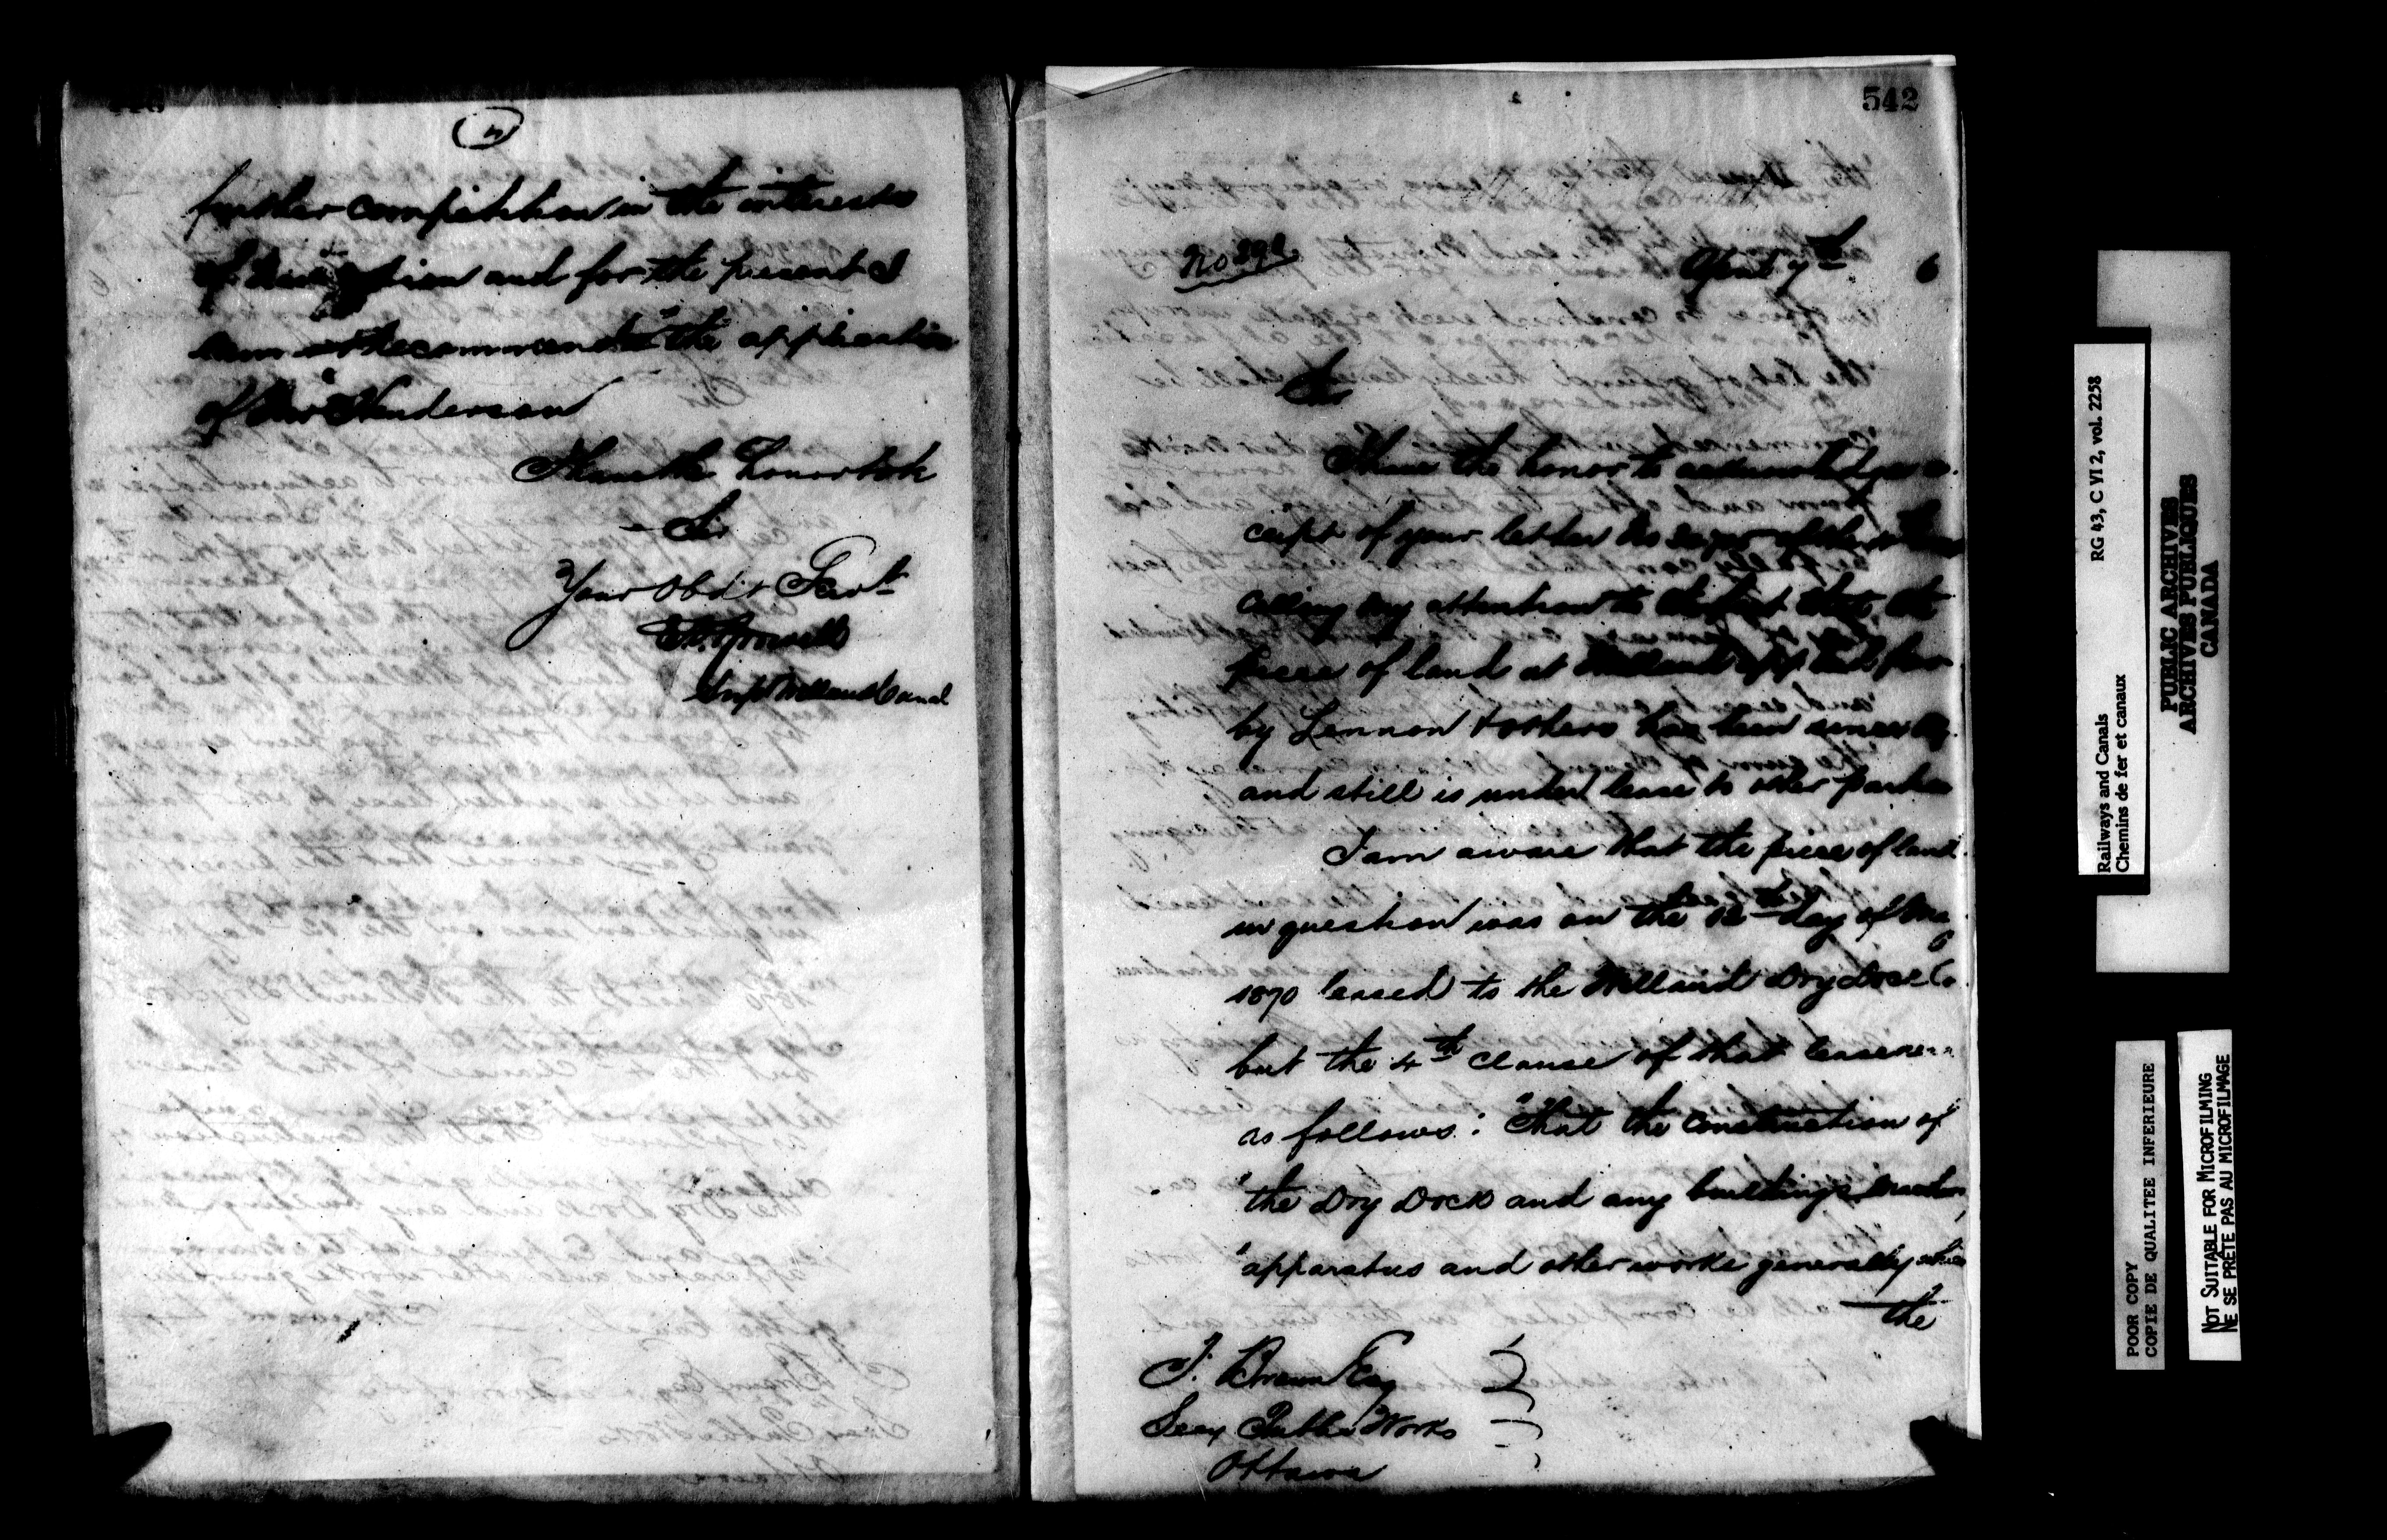 further competition in the interests
of Navigation and for the present I
recommend the application
of Mr Henderson
I have the honor to be
Sir
Your Obdt Servt
Supt Welland Canal
542
No 392
April 7th 6
Sir
I have the honor to acknowledge re-
ceipt of your letter No of the
calling my attention to the fact that the
piece of land at Welland app for
by Lennon & others has been
and still is under lease to other parties
I am aware that the piece of land
in question was on the 12th day of May
1870 leased to the Welland Dry Dock Co
but the 4th clause of that lease
as follows: "That the construction of
"the Dry Dock and any buildings
"apparatus and other works generally which
the
F. Braun Esq
Secy Public Works
Ottawa
Railways and Canals RG 43, C VI 2, vol. 2258
Chemins de fer et canaux
PUBLIC ARCHIVES
ARCHIVES PUBLIQUES
CANADA
POOR COPY
COPIE DE QUALITEE INFERIEURE
NOT SUITABLE FOR MICROFILMING
NE SE PRÊTE PAS AU MICROFILMAGE